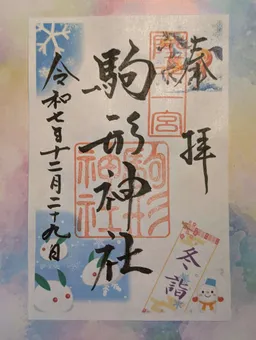 奉拝
一宮
駒形神社
駒形
神社
令和七年十二月二十九日
冬詣